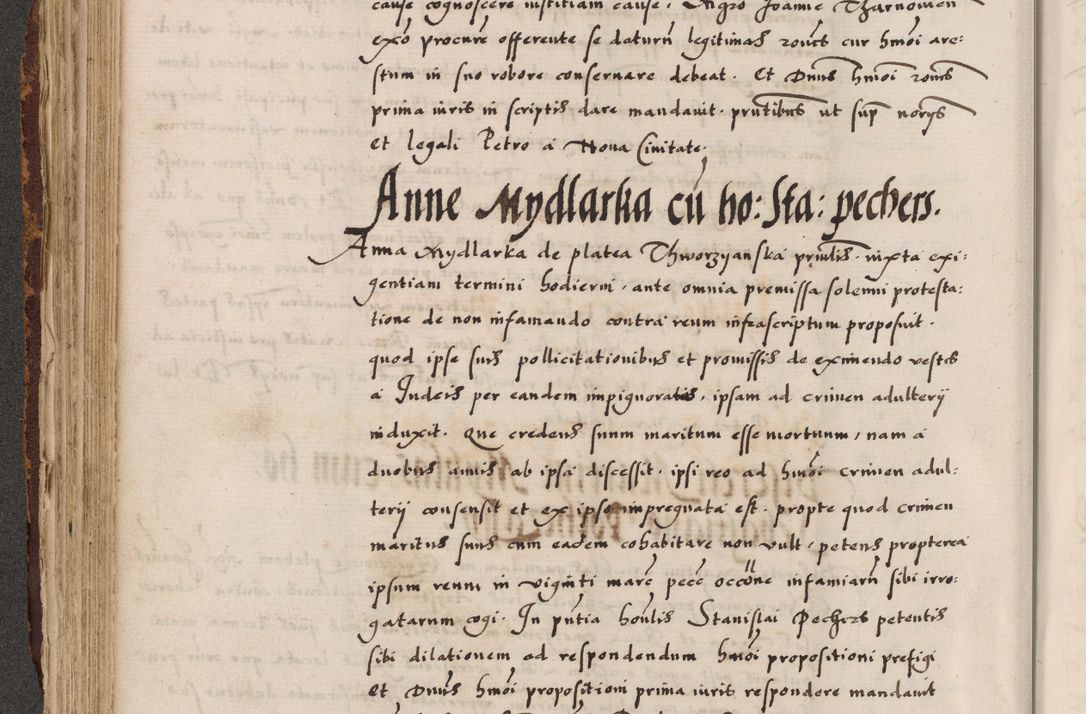 cause cognoscere iustitiam cause. Mgro Joanne Tharnowien
exō procure offerente se daturū legitimas rōnes cur hmōi are:
stum in suo robore conservare debeat. Et Dnus hmōi rōnes
prima iuris in scriptis dare mandauit. pntibus ut sup norys
et legali Petro a Noua Ciuitate,
Anne Mydlarka cū ho: Sta: pechers.
Anna Mydlarka de platea Thworzyanska pnlis. iuxta exi:
gentiam termini hodierni. ante omnia premissa solenni protesta:
tione de non infamando contra reum infrascriptum proposuit.
quod ipse suis pollicitationibus et promissis de eximendo vestes
a Judeis per eandem impignoratis, ipsam ad crimen adulterij
induxit. Que credens suum maritum esse mortuum, nam a
duobus annis ab ipsa discessit. ipsi reo ad hmōi crimen adul:
terij consensit et ex ipso impregnata est. propte quod crimen
maritus suus cum eadem cohabitare non vult. petens propterea
ipsum reum in viginti marc pecc occōne infamiarū sibi irro:
gatarum cogi. In pntia honlis Stanislai Pechers petentis
sibi dilationem ad respondendum hmōi propositioni prefigi
Et Dnus hmōi propositioni prima iuris respondere mandauit